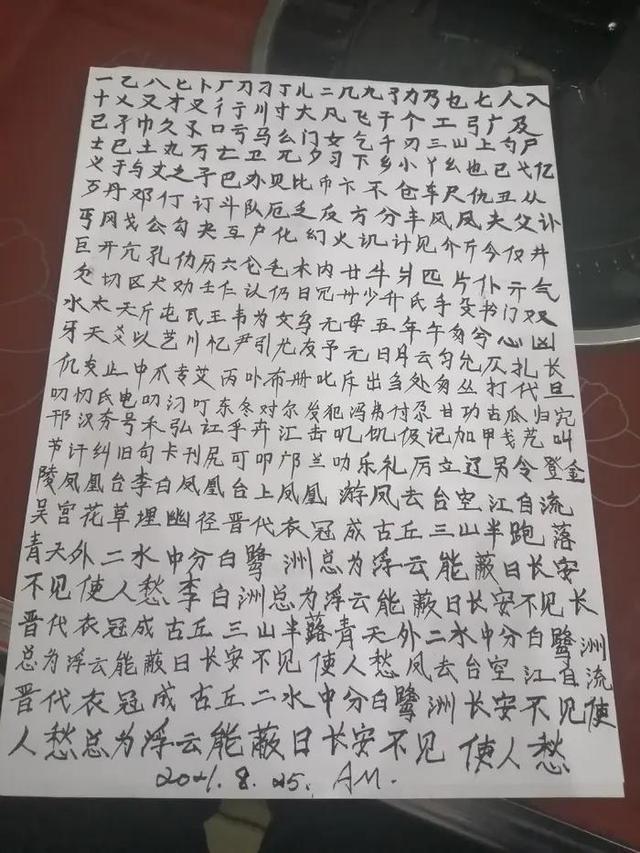 一乙八匕卜厂刀刁丁儿二几九了力乃也七人入
十乂又才叉彳亍川寸大凡飞干个工弓广及
己孑巾久孓口亏马么门女乞千刃三山上勺尸
士巳土丸万亡卫兀夕习下乡小丫幺也已弋亿
义于与丈之子巴办见比币卞不仓车尺仇丑从
歹丹邓仃订斗队厄乏反方分丰风凤夫父讣
丐冈戈公勾夬互户化幻火讥计见介斤今仅井
巨开亢孔仂历六仑毛木内廿牛爿匹片仆亓气
欠切区犬劝壬仁认仍日冗卅少升氏手殳书门双
水太天斤屯瓦王韦为文乌无毋五年午匀兮心凶
牙夭爻以艺川忆尹引尤友予元曰月云匀允仄扎长
仉支止中爪专艾丙卟布册叱斥出刍处匆丛打代旦
叨忉氐电叨氻叮东冬对尔发犯冯弗付尕甘功古瓜归宄
邗汉夯号禾弘讧乎卉汇击叽饥伋记加甲戋艽叫
节讦纠旧句卡刊尻可叩邝兰叻乐礼厉立辽另令登金
陵凤凰台李白凤凰台上凤凰游凤去台空江自流
吴宫花草埋幽径晋代衣冠成古丘三山半跑落
青天外二水中分白鹭洲总为浮云能蔽日长安
不见使人愁李白洲总为浮云能蔽日长安不见长
晋代衣冠成古丘三山半落青天外二水中分白鹭洲
总为浮云能蔽日长安不见使人愁凤去台空江自流
晋代衣冠成古丘二水中分白鹭洲长安不见使
人愁总为浮云能蔽日长安不见使人愁
2021.8.25. AM.